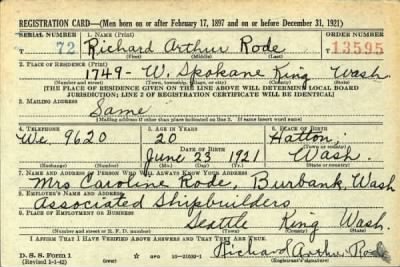 REGISTRATION CARD—(Men born on or after February 17, 1897 and on or before December 31, 1921)
SERIAL NUMBER 1. NAME (Print) ORDER NUMBER
72 Richard Arthur Rode 13595
(First) (Middle) (Last)
2. PLACE OF RESIDENCE (Print)
1749- W. Spokane King Wash.
(Number and street) (Town, township, village, or city) (County) (State)
[THE PLACE OF RESIDENCE GIVEN ON THE LINE ABOVE WILL DETERMINE LOCAL BOARD
JURISDICTION; LINE 2 OF REGISTRATION CERTIFICATE WILL BE IDENTICAL]
3. MAILING ADDRESS
Same
[Mailing address if other than place indicated on line 2. If same insert word same]
4. TELEPHONE 5. AGE IN YEARS 6. PLACE OF BIRTH
We. 9620 20 Hatton
DATE OF BIRTH (Town or county)
June 23 1921 Wash.
(Exchange) (Number) (Mo.) (Day) (Yr.) (State or country)
7. NAME AND ADDRESS OF PERSON WHO WILL ALWAYS KNOW YOUR ADDRESS
Mrs Caroline Rode, Burbank, Wash
8. EMPLOYER'S NAME AND ADDRESS
Associated Shipbuilders
9. PLACE OF EMPLOYMENT OR BUSINESS
Seattle King Wash.
(Number and street or R. F. D. number) (Town) (County) (State)
I AFFIRM THAT I HAVE VERIFIED ABOVE ANSWERS AND THAT THEY ARE TRUE.
D. S. S. Form 1 Richard Arthur Rode
(Revised 1-1-42) GPO 16-21630-1 (Registrant's signature)